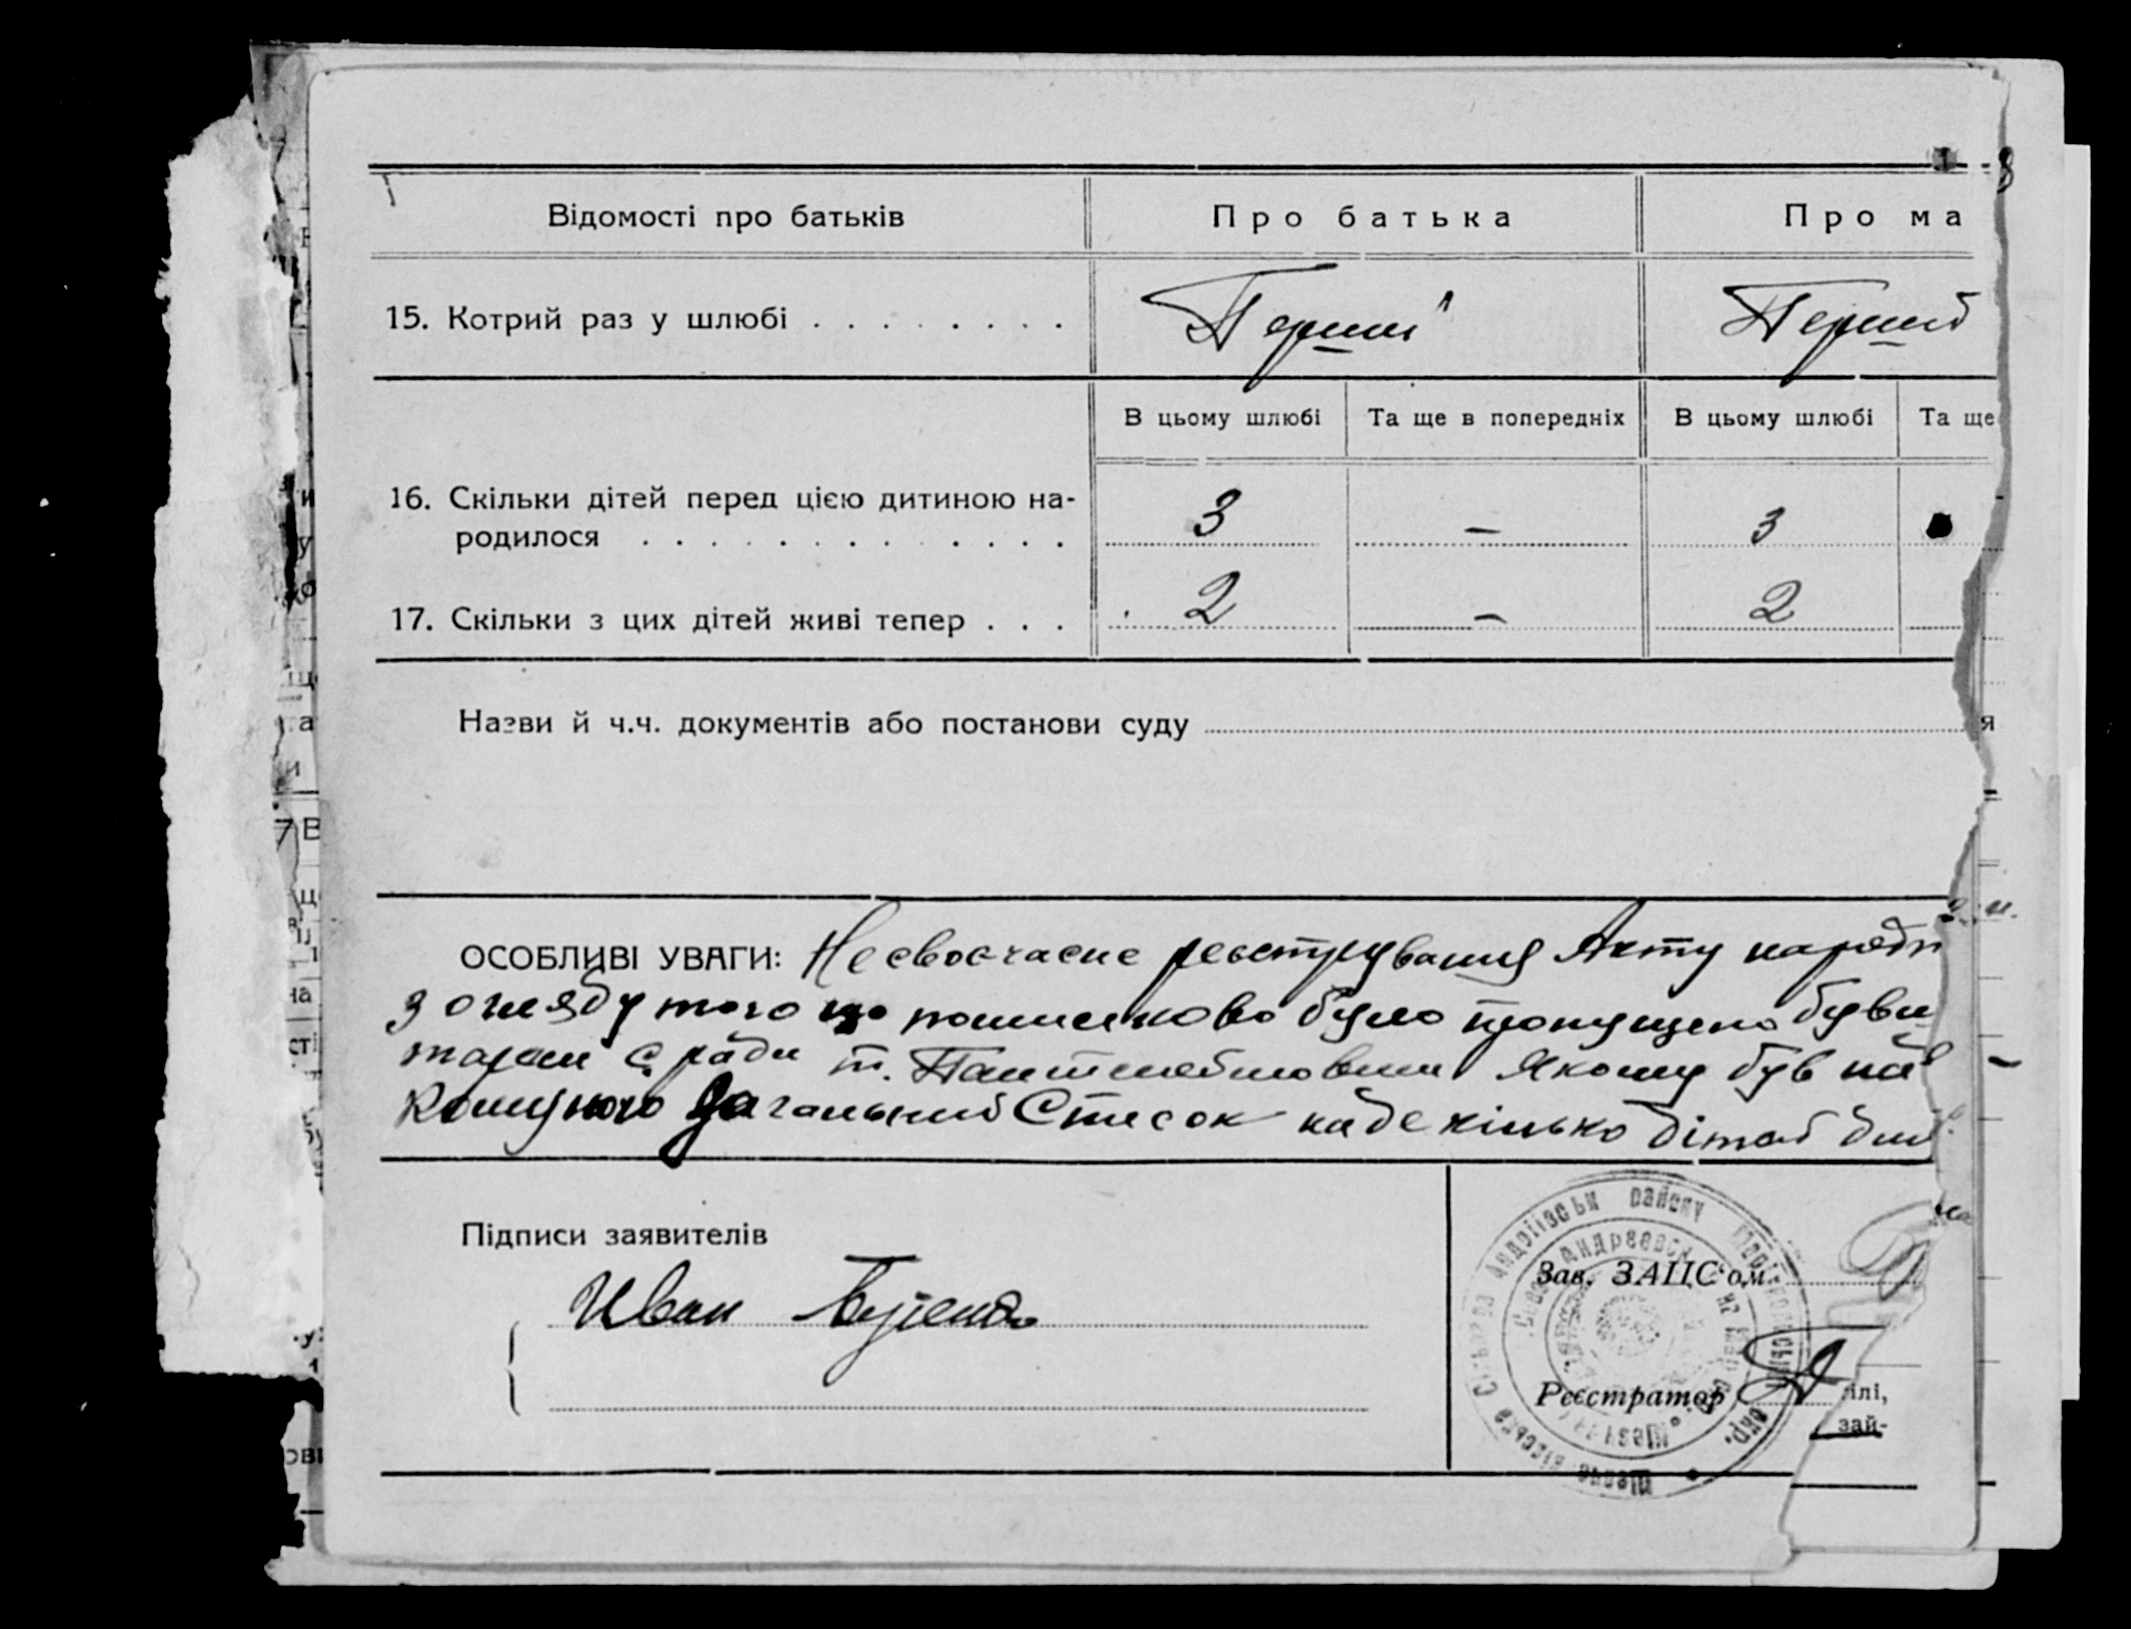 Відомості про батьків
Про батька
Про ма
15. Котрий раз у шлюбі
Перший
Перший
В цьому шлюбі
Та ще в попередніх
В цьому шлюбі
Та ще
16. Скільки дітей перед цією дитиною на-
родилося
3
–
3
17. Скільки з цих дітей живі тепер
2
–
2
Назви й ч.ч. документів або постанови суду
ОСОБЛИВІ УВАГИ: Несвоєчасне реєстрування Акту народ
з огляду того що помилково було пропущено
с. ради т. якому був
загальний Список на декілько дітей
Підписи заявителів
Иван
Зав. ЗАГС'ом
Реєстратор
ілі,
зай-